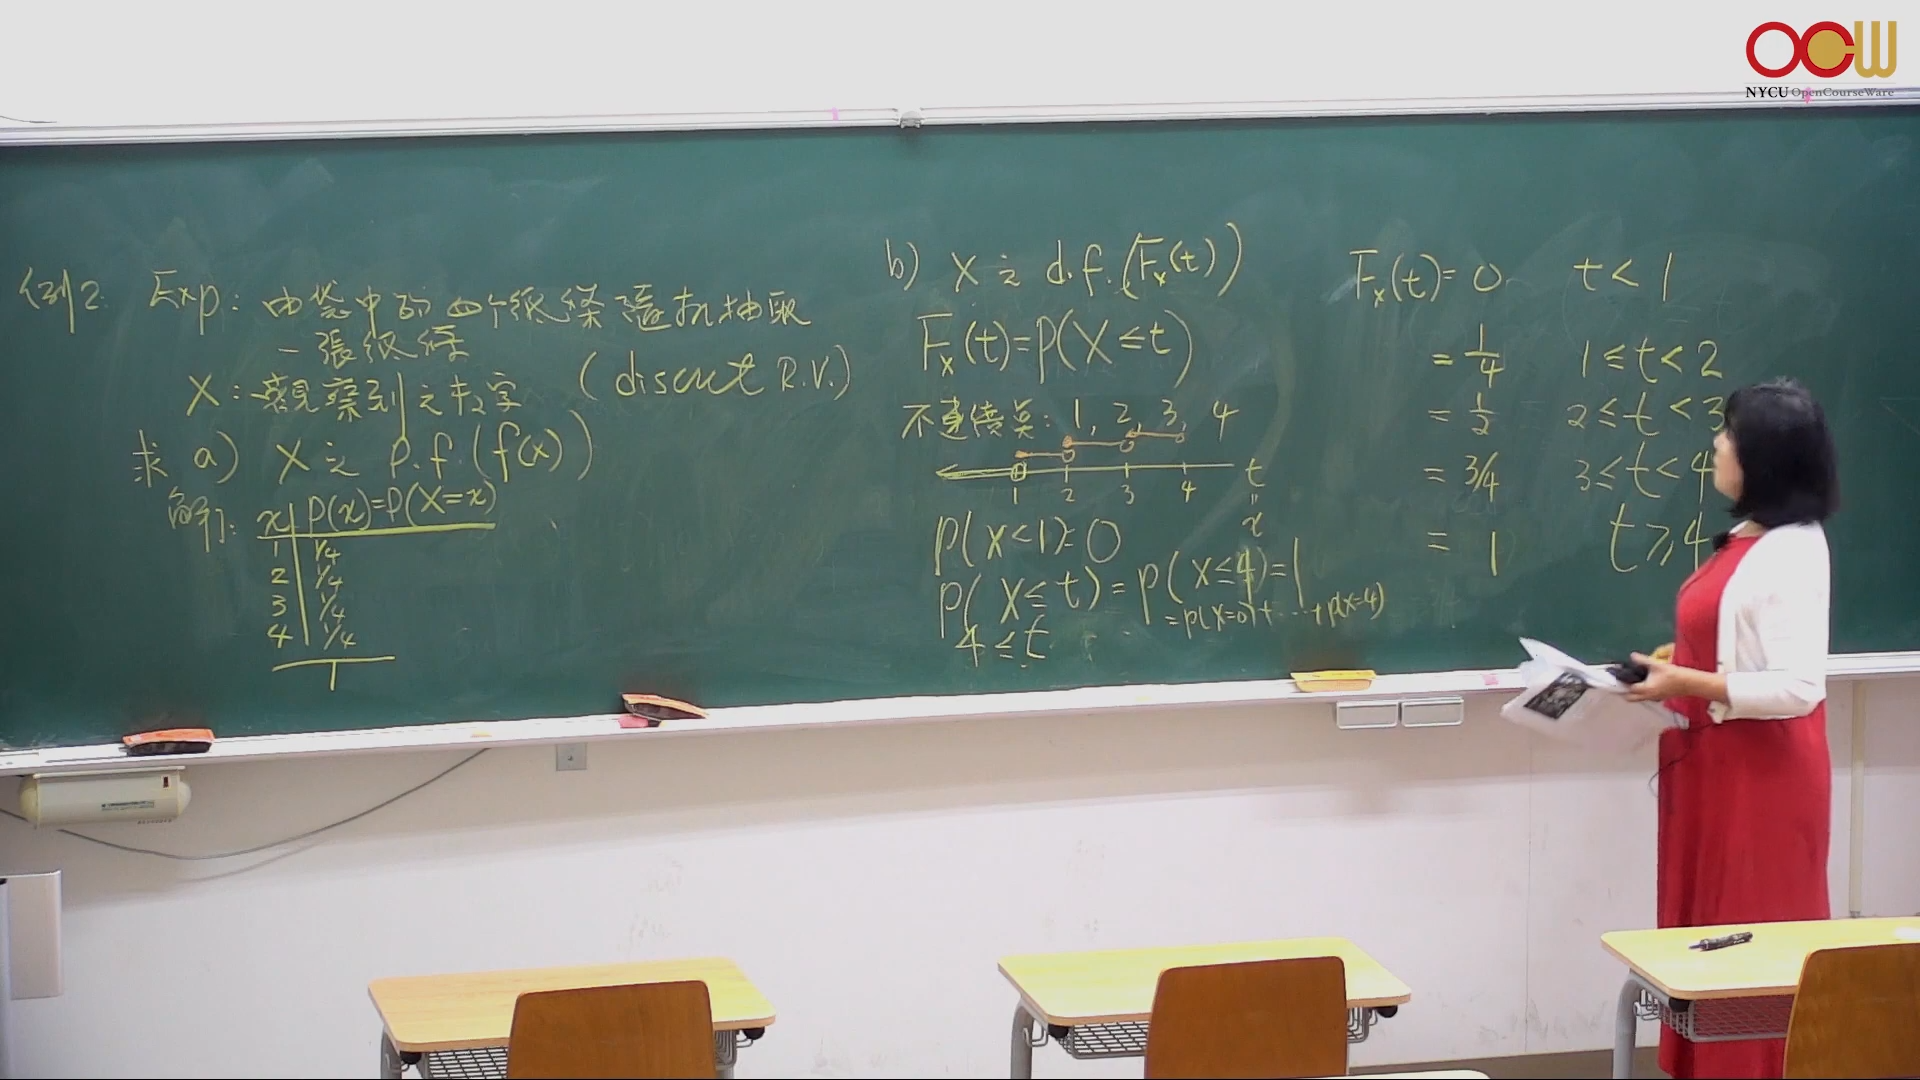 OCW
NYCU OpenCourseWare
例2. Exp: 由袋中的四个纸條隨机抽取
一張纸條
X: 觀察到之数字 (discret R.V.)
求 a) X之 p.f. (f(x))
解: x P(x)=P(X=x)
1 1/4
2 1/4
3 1/4
4 1/4
1
b) X之 d.f. (Fx(t))
Fx(t)=P(X≤t)
不連續點: 1, 2, 3, 4
1 2 3 4 t
"
x
P(X<1)=0
P(X≤t)=P(X≤4)=1
4≤t =P(X=0)+…+P(X=4)
Fx(t)= 0 t<1
= 1/4 1≤t<2
= 1/2 2≤t<3
= 3/4 3≤t<4
= 1 t≥4